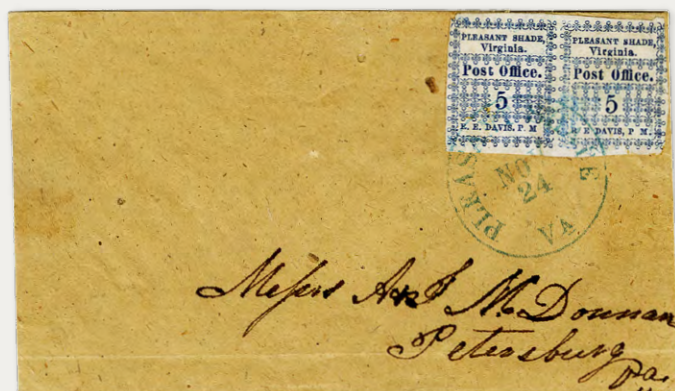 PLEASANT SHADE,
Virginia.
Post Office.
5
E. E. DAVIS, P M
PLEASANT SHADE,
Virginia.
Post Office.
5
E. E. DAVIS, P M.
NO
24
VA
Messrs A & J McDonnan
Petersburg
Va.